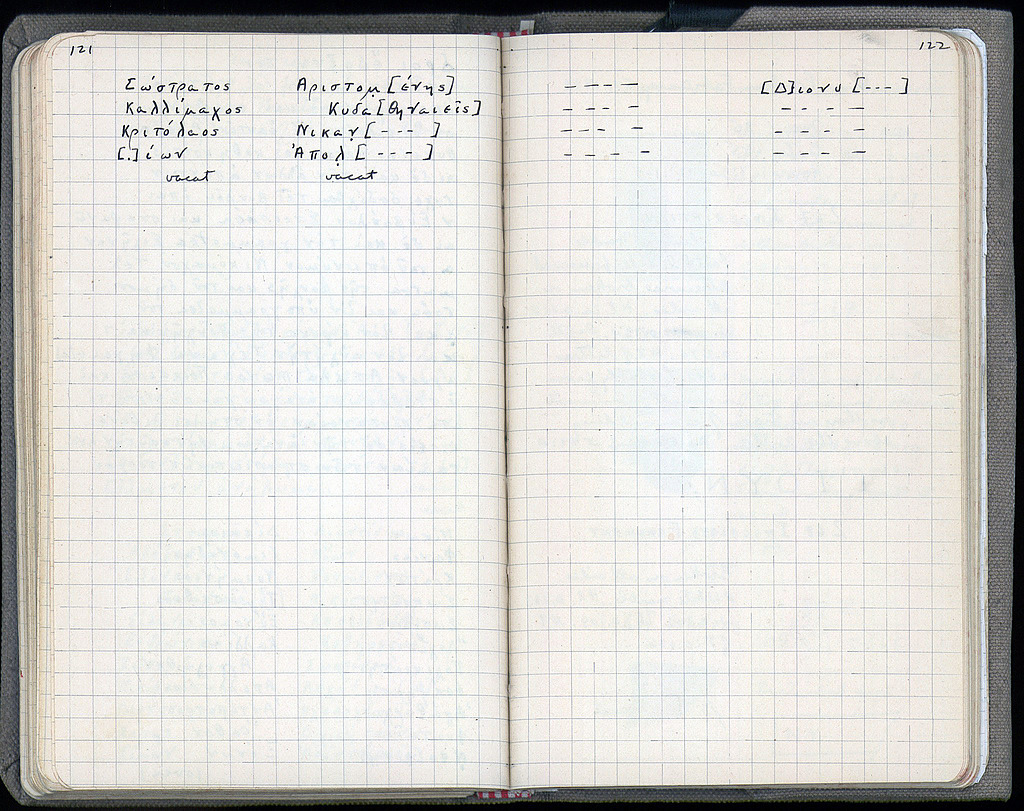 121
122
Σώστρατος Αριστομ̣[ένης] – – – – [Δ]ιονυ[---]
Καλλίμαχος Κυδα[θηναιεῖς] – – – – – – – –
Κριτόλαος Νικαν̣[--- ] – – – – – – – –
[.]ίων Ἀπολ̣[--- ] – – – – – – – –
vacat vacat